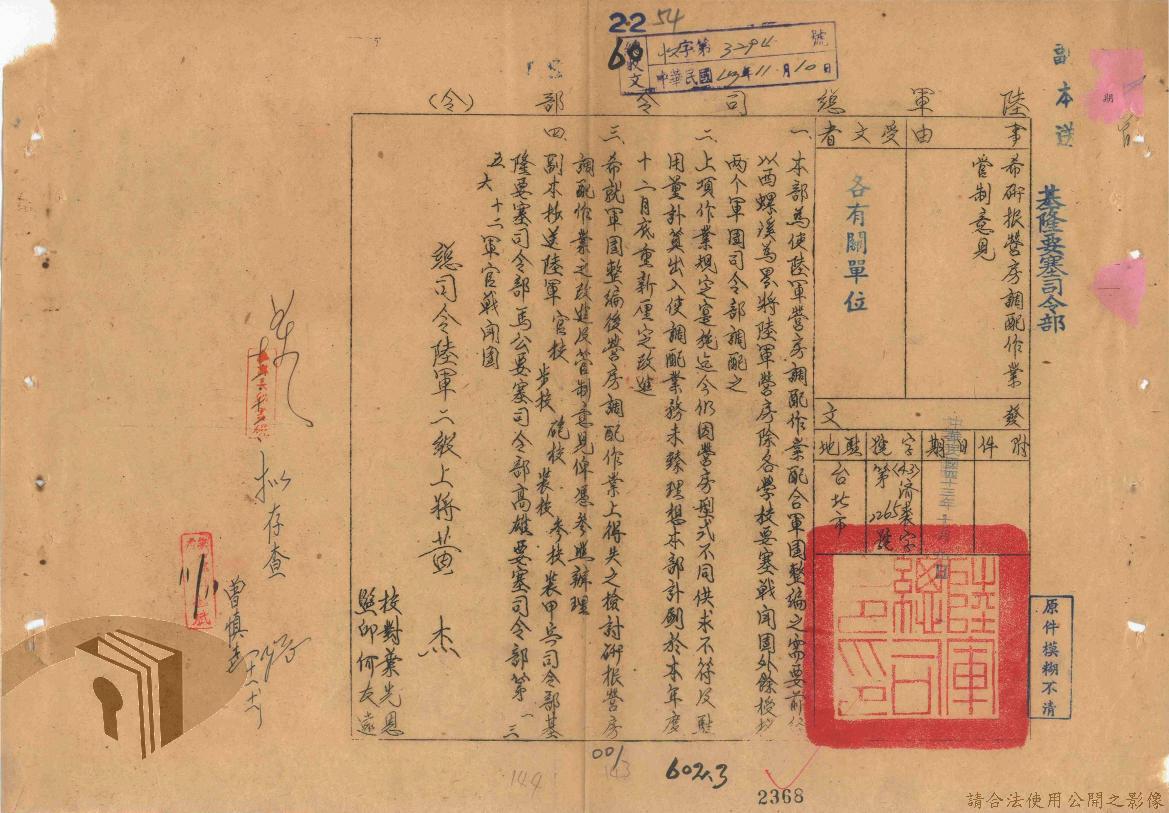 副本送
基隆要塞司令部
陸軍總司令部(令)
事由
希研擬營房調配作業
管制意見
受文者
各有關單位
發文
附件
日期
中華民國四十三年十一月九日
字號
(43)
第1265號
駐地
台北市
一、本部為使陸軍營房調配作業配合軍團整編之需要前
以西螺溪為界將陸軍營房除各學校要塞戰鬥團外餘
兩个軍團司令部調配之
二、上項作業規定實施迄今仍因營房型式不同供求不符及駐
用量計算出入使調配業務未臻理想本部計劃於本年度
十二月底重新厘定改進
三、希就軍團整編後營房調配作業上得失之檢討研擬營房
調配作業之改進及管制意見俾憑參照辦理
四、副本抄送陸軍官校 步校 砲校 裝校 參校裝甲兵司令部基
隆要塞司令部馬公要塞司令部高雄要塞司令部第一三
五六十二軍官戰鬥團
總司令陸軍二級上將黃 杰
校對葉光恩
監印何友遠
收文
收字第3294號
中華民國43年11月10日
22 54
60
陸軍總司令印
原件模糊不清
擬存查
11/11
曾慎
001
143
144
602.3
2368
請合法使用公開之影像